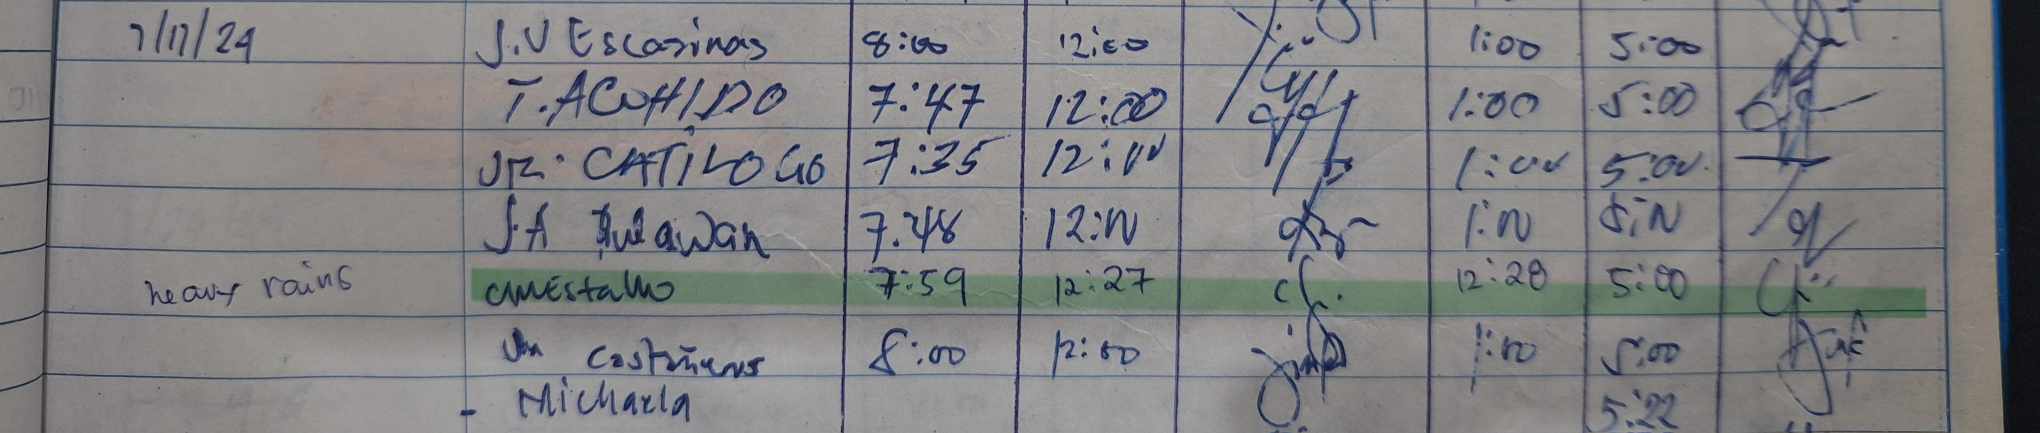 7/17/24 J.V Escasinas 8:00 12:00 1:00 5:00
T. ACOHIDO 7:47 12:00 1:00 5:00
JR. CATILOGO 7:35 12:00 1:00 5:00.
J.A 7:48 12:00 1:00 5:00
heavy rains CMEstallo 7:59 12:27 12:28 5:00
8:00 12:00 1:00 5:00
- Michaela 5:22